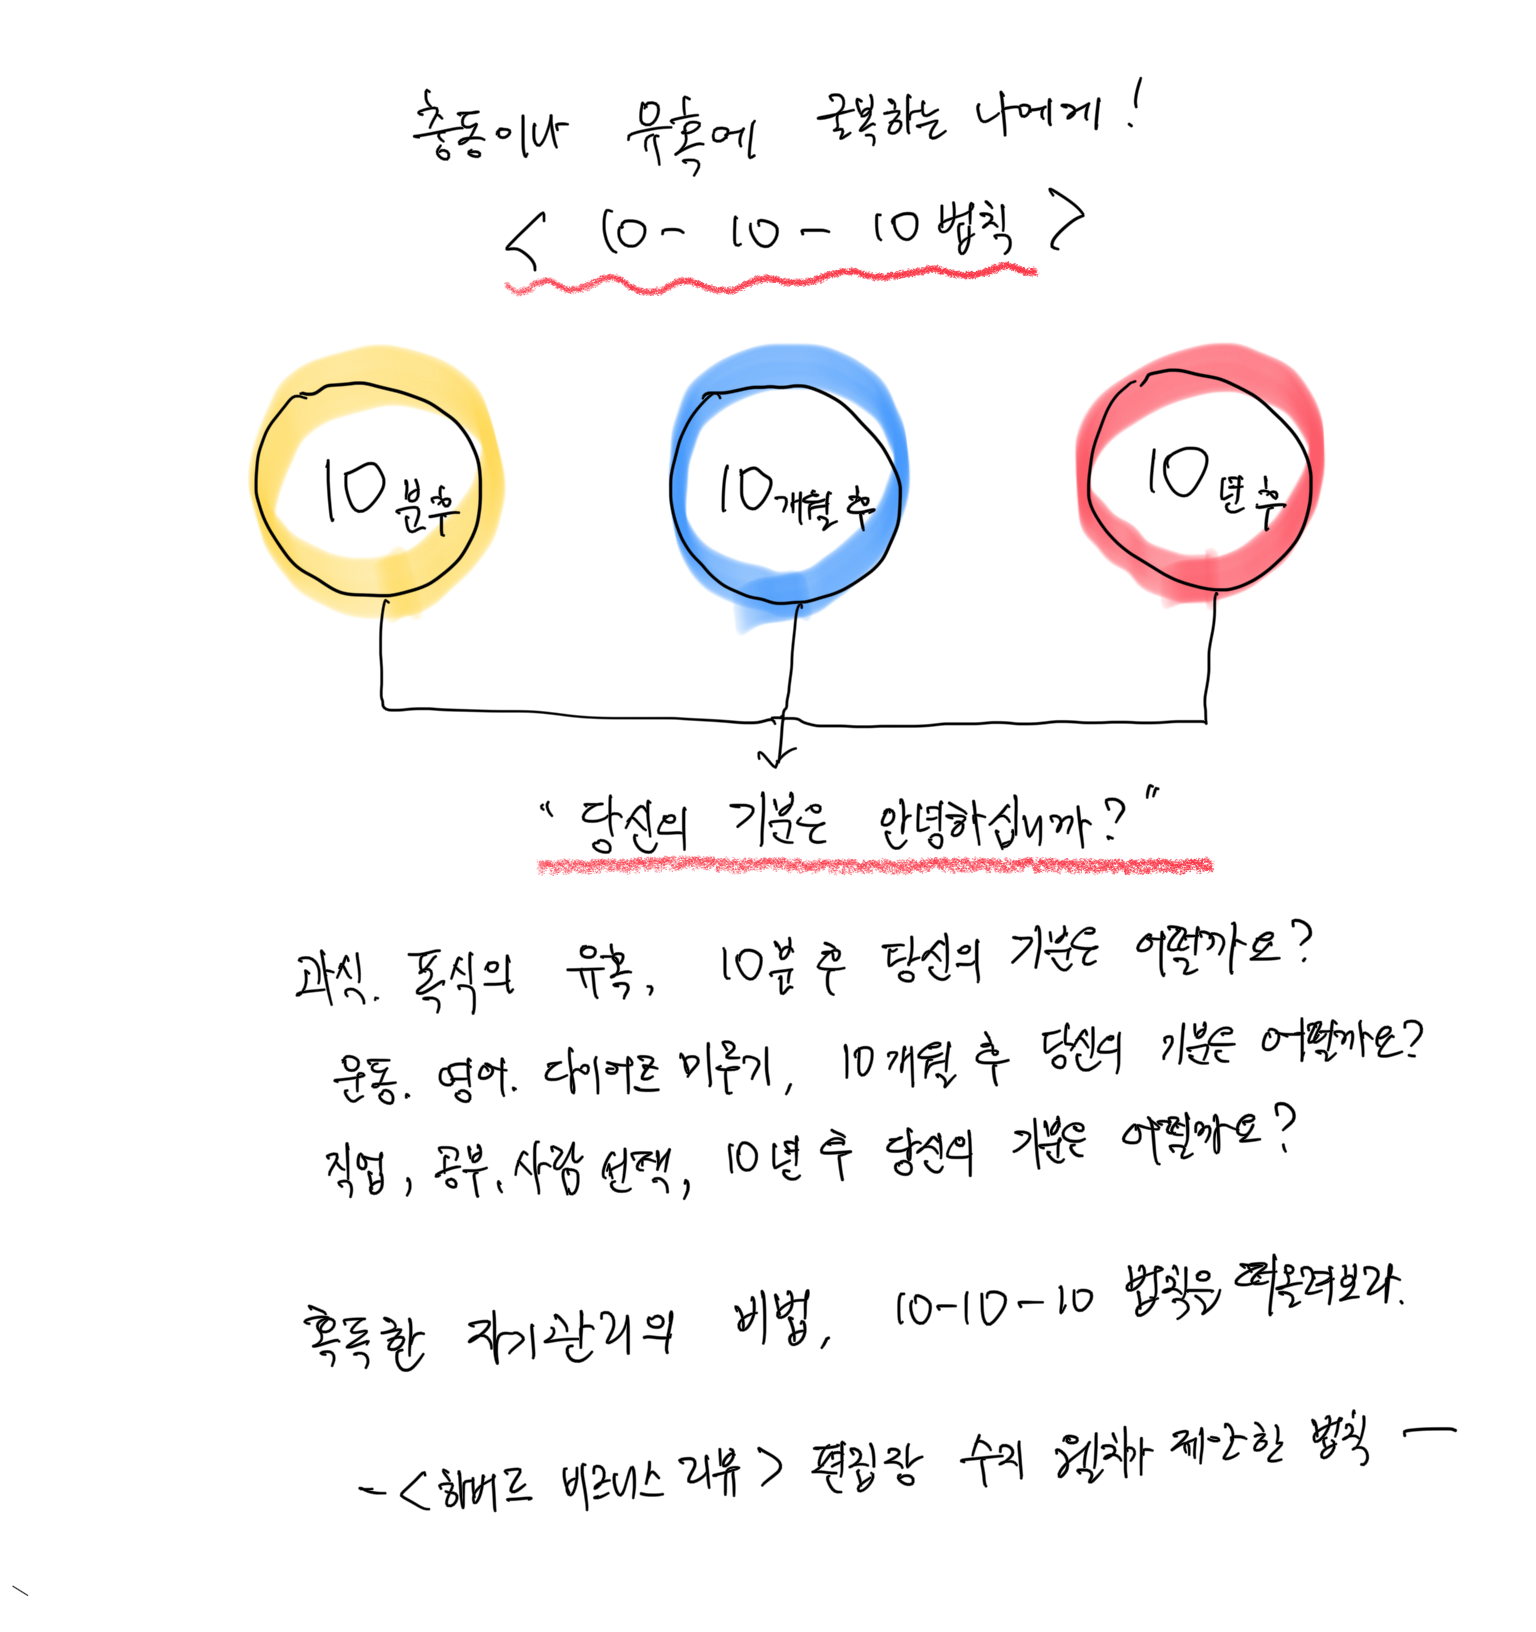 충동이나 유혹에 굴복하는 나에게!
< 10 - 10 - 10 법칙 >
10분 후
10개월 후
10년 후
"당신의 기분은 안녕하십니까?"
과식. 폭식의 유혹, 10분 후 당신의 기분은 어떨까요?
운동. 영어. 다이어트 미루기, 10개월 후 당신의 기분은 어떨까요?
직업, 공부, 사람 선택, 10년 후 당신의 기분은 어떨까요?
혹독한 자기관리의 비법, 10-10-10 법칙을 떠올려보라.
- <하버드 비즈니스 리뷰> 편집장 수지 웰치가 제안한 법칙 -